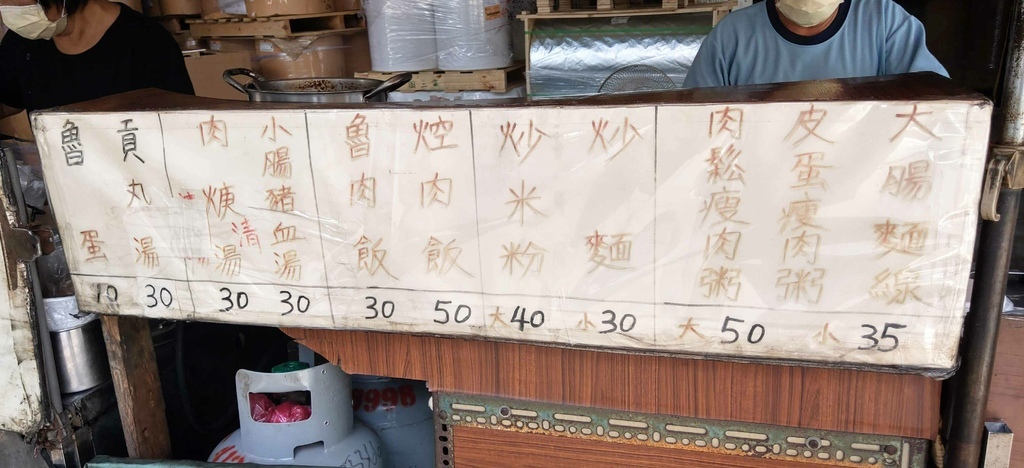 大腸麵線
皮蛋瘦肉粥
肉鬆瘦肉粥
大50 小35
炒麵
炒米粉
大40 小30
焢肉飯 50
魯肉飯 30
小腸豬血湯 30
肉焿湯 30
清
貢丸湯 30
魯蛋 10